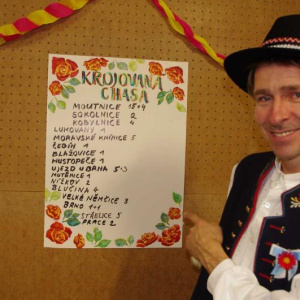 KROJOVANÁ
CHASA
MOUTNICE 15+4
SOKOLNICE 2
KOBYLNICE 4
LUHOVANY 1
MORAVSKÉ KNÍNICE 5
TEDÍN 1
BLAŽOVICE 1
MUSTOPEČE 1
UJEZD U BRNA 5+3
MUTĚNICE 1
NÍŽKOV 2
BLUČINA 4
VELKÉ NĚMČICE 3
BRNO 1+1
STŘELICE 5
PRACE 2